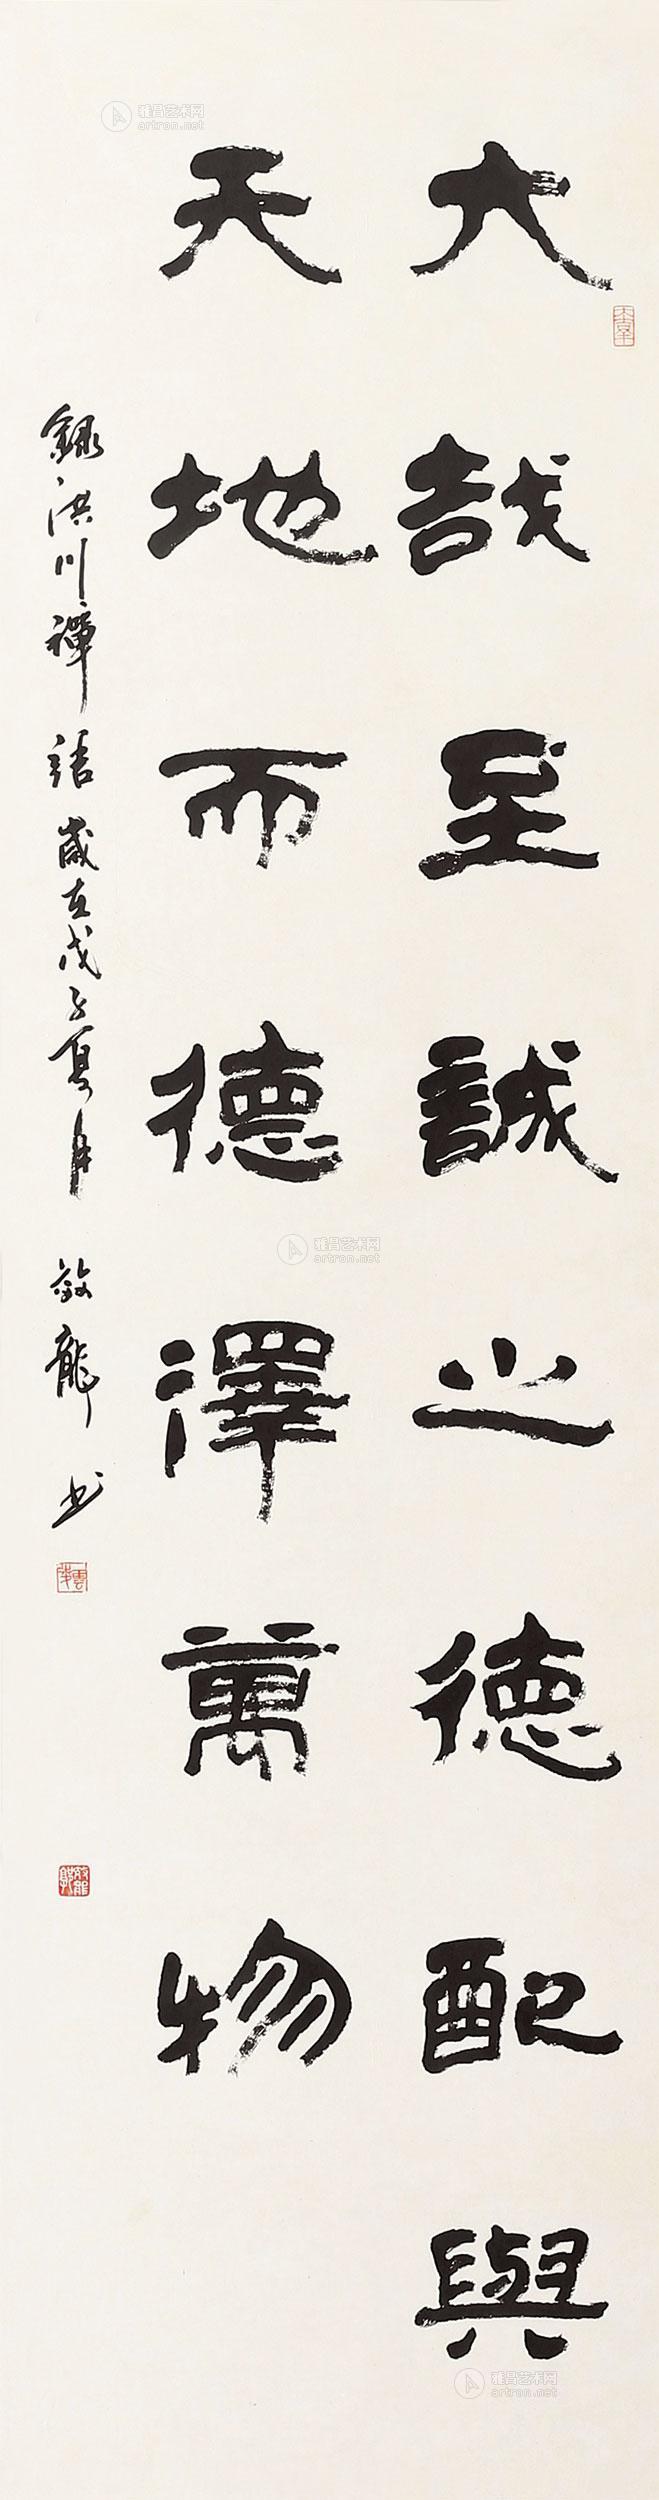 大哉至誠之德配與
天地而德澤萬物
錄洪川禪語歲在戊子夏月敬龍書
雅昌艺术网
artron.net
雅昌艺术网
artron.net
雅昌艺术网
artron.net